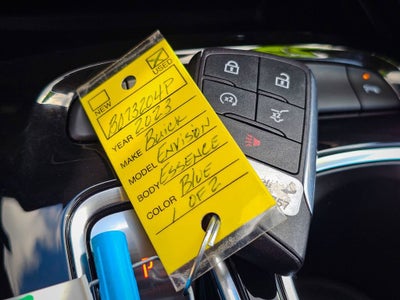 NEW
USED
BA73204P
YEAR 2023
MAKE Buick
MODEL ENVISION
BODY ESSENCE
COLOR Blue
1 OF 2